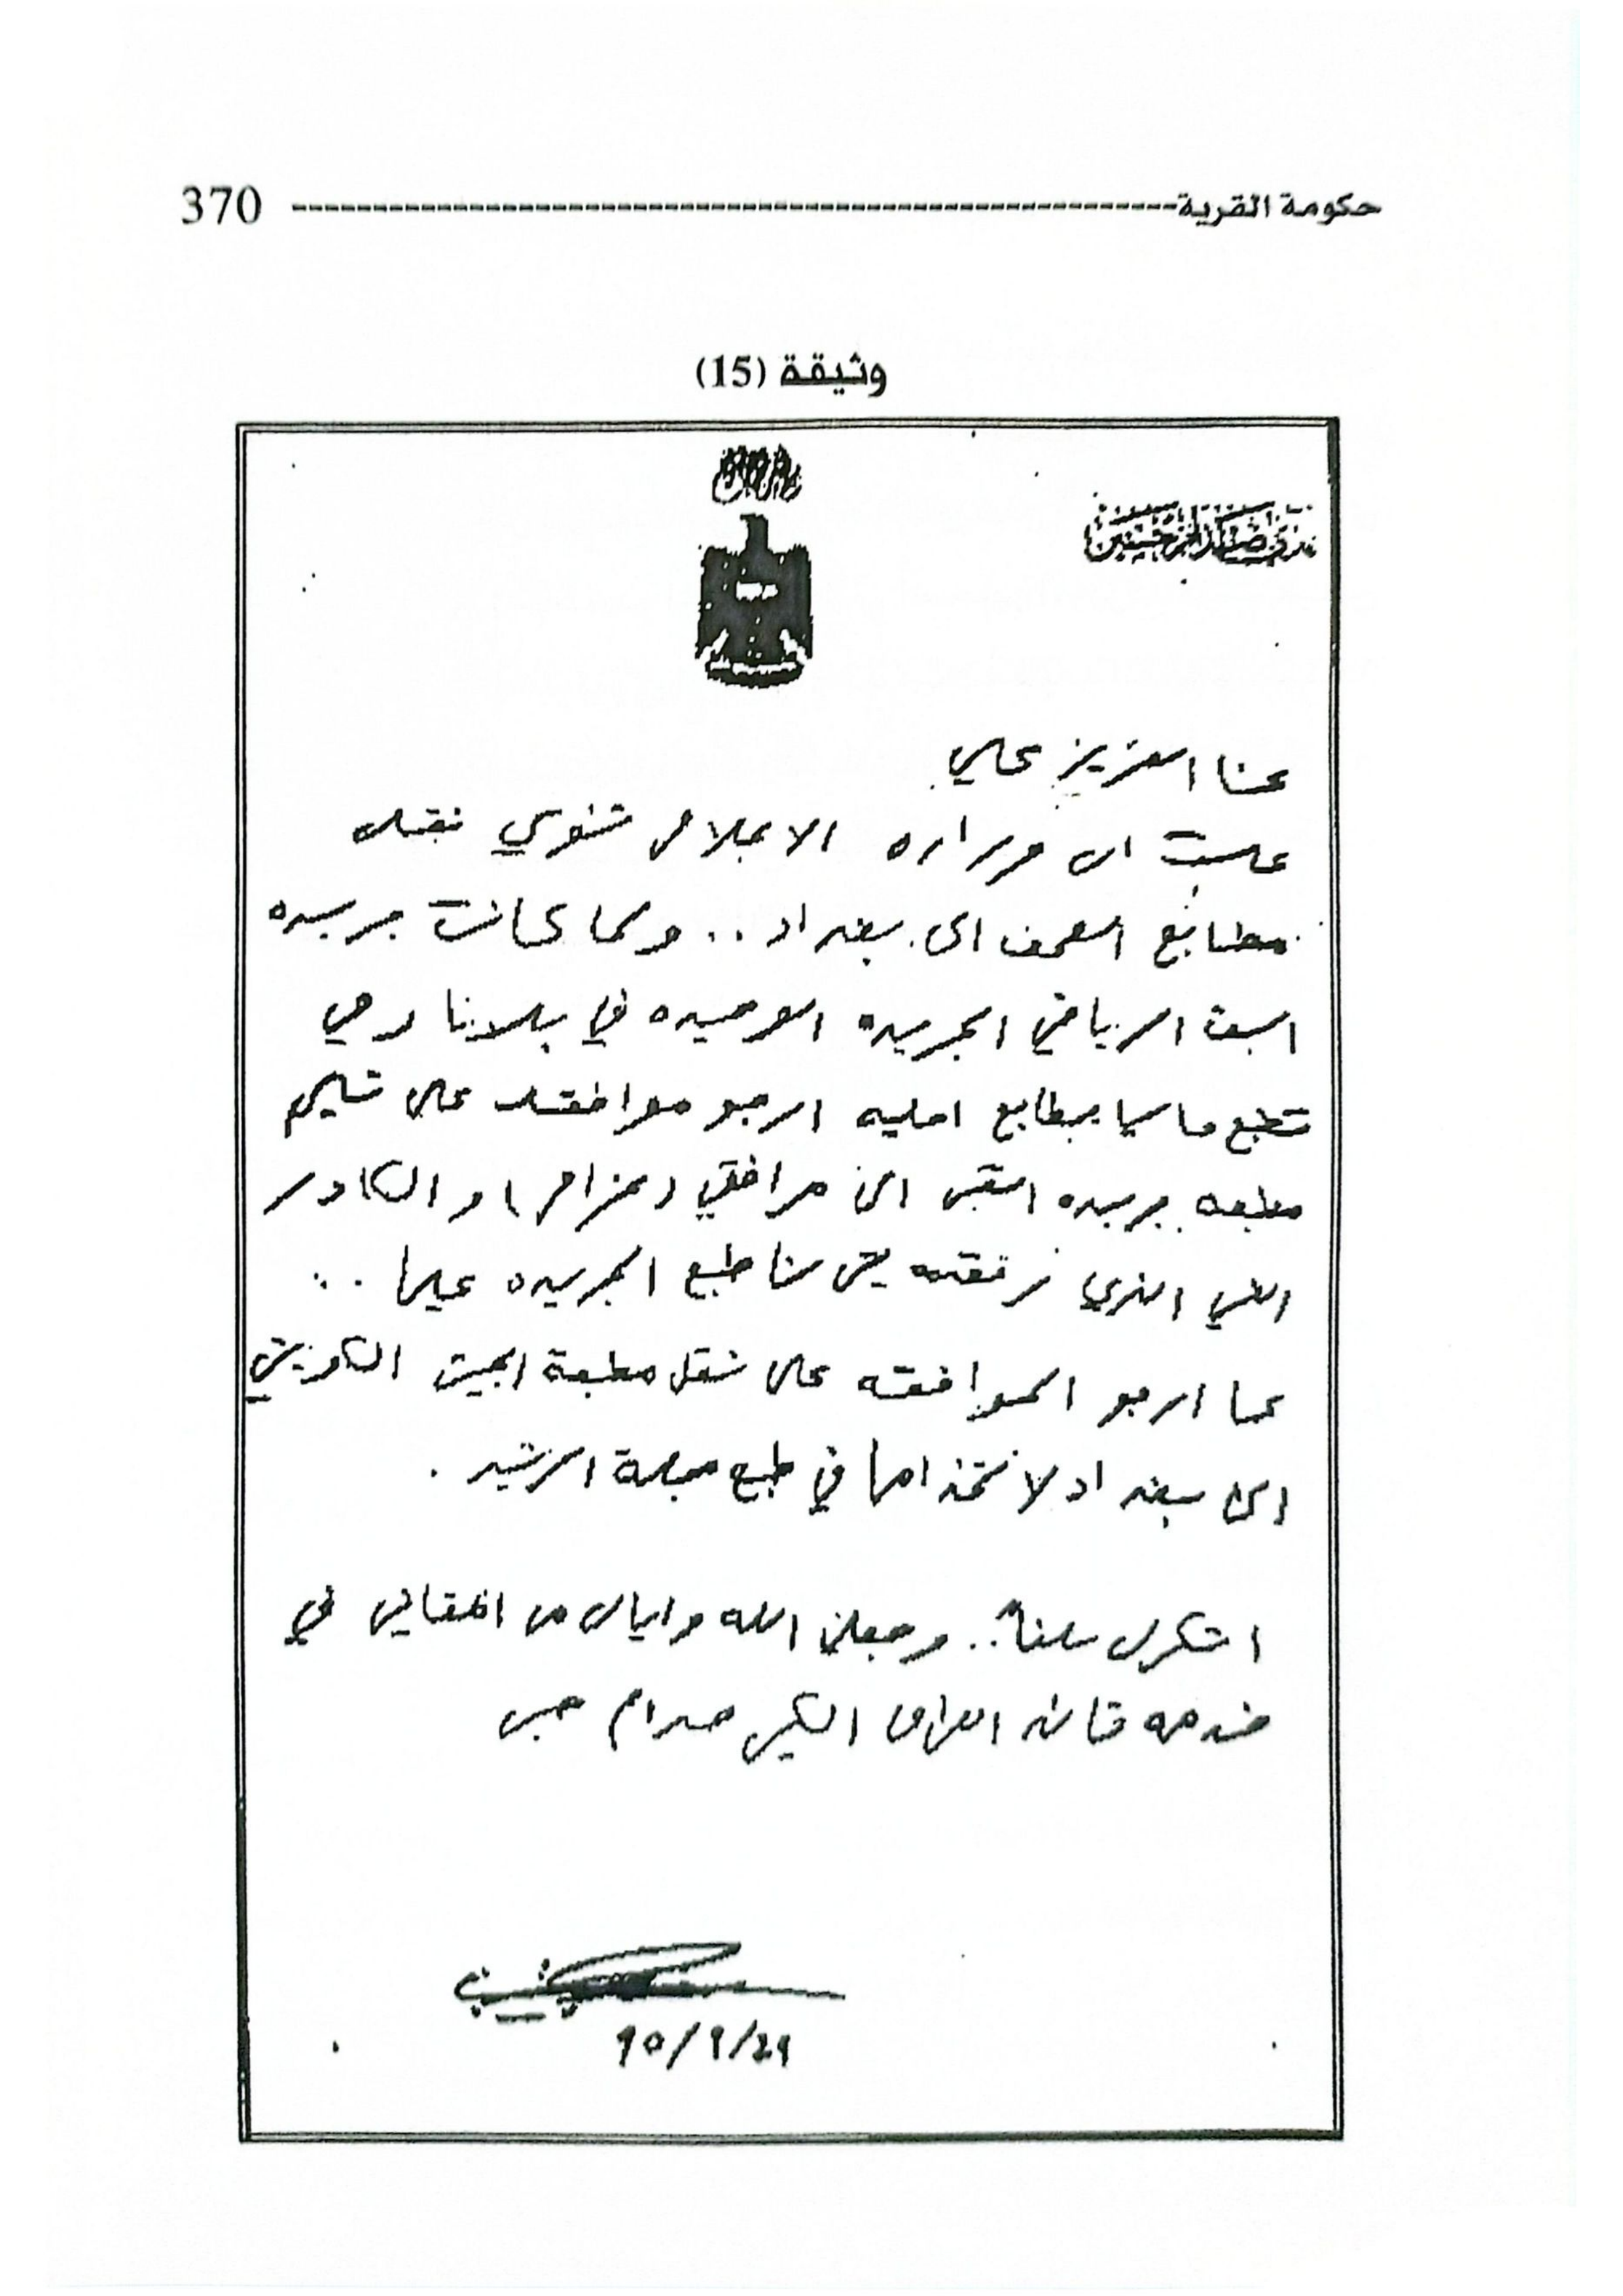 حكومة القرية 370
وثيقة (15)
عدي صدام حسين
عمنا العزيز علي
علمت ان وزاره الاعلام تنوي نقل
مطابع الصحف الى بغداد .. ولما كانت جريده
البعث الرياضي الجريده الوحيده في بلدنا وهي
تطبع حاليا بمطابع اهليه ارجو موافقتك على تسليم
مطبعه جريده القبس الى مرافقي (حزام) والكادر
الفني الذي نرفقه حتى طبع الجريده عليها ..
كما ارجو الموافقه على نقل مطبعة الجيش الكويتي
الى بغداد لاستخدامها في طبع مجلة الرشيد .
اشكرك سلفاً .. وجعلني الله واياك من المتفانين في
خدمه قائد العراق الكبير صدام حسين
90/9/29